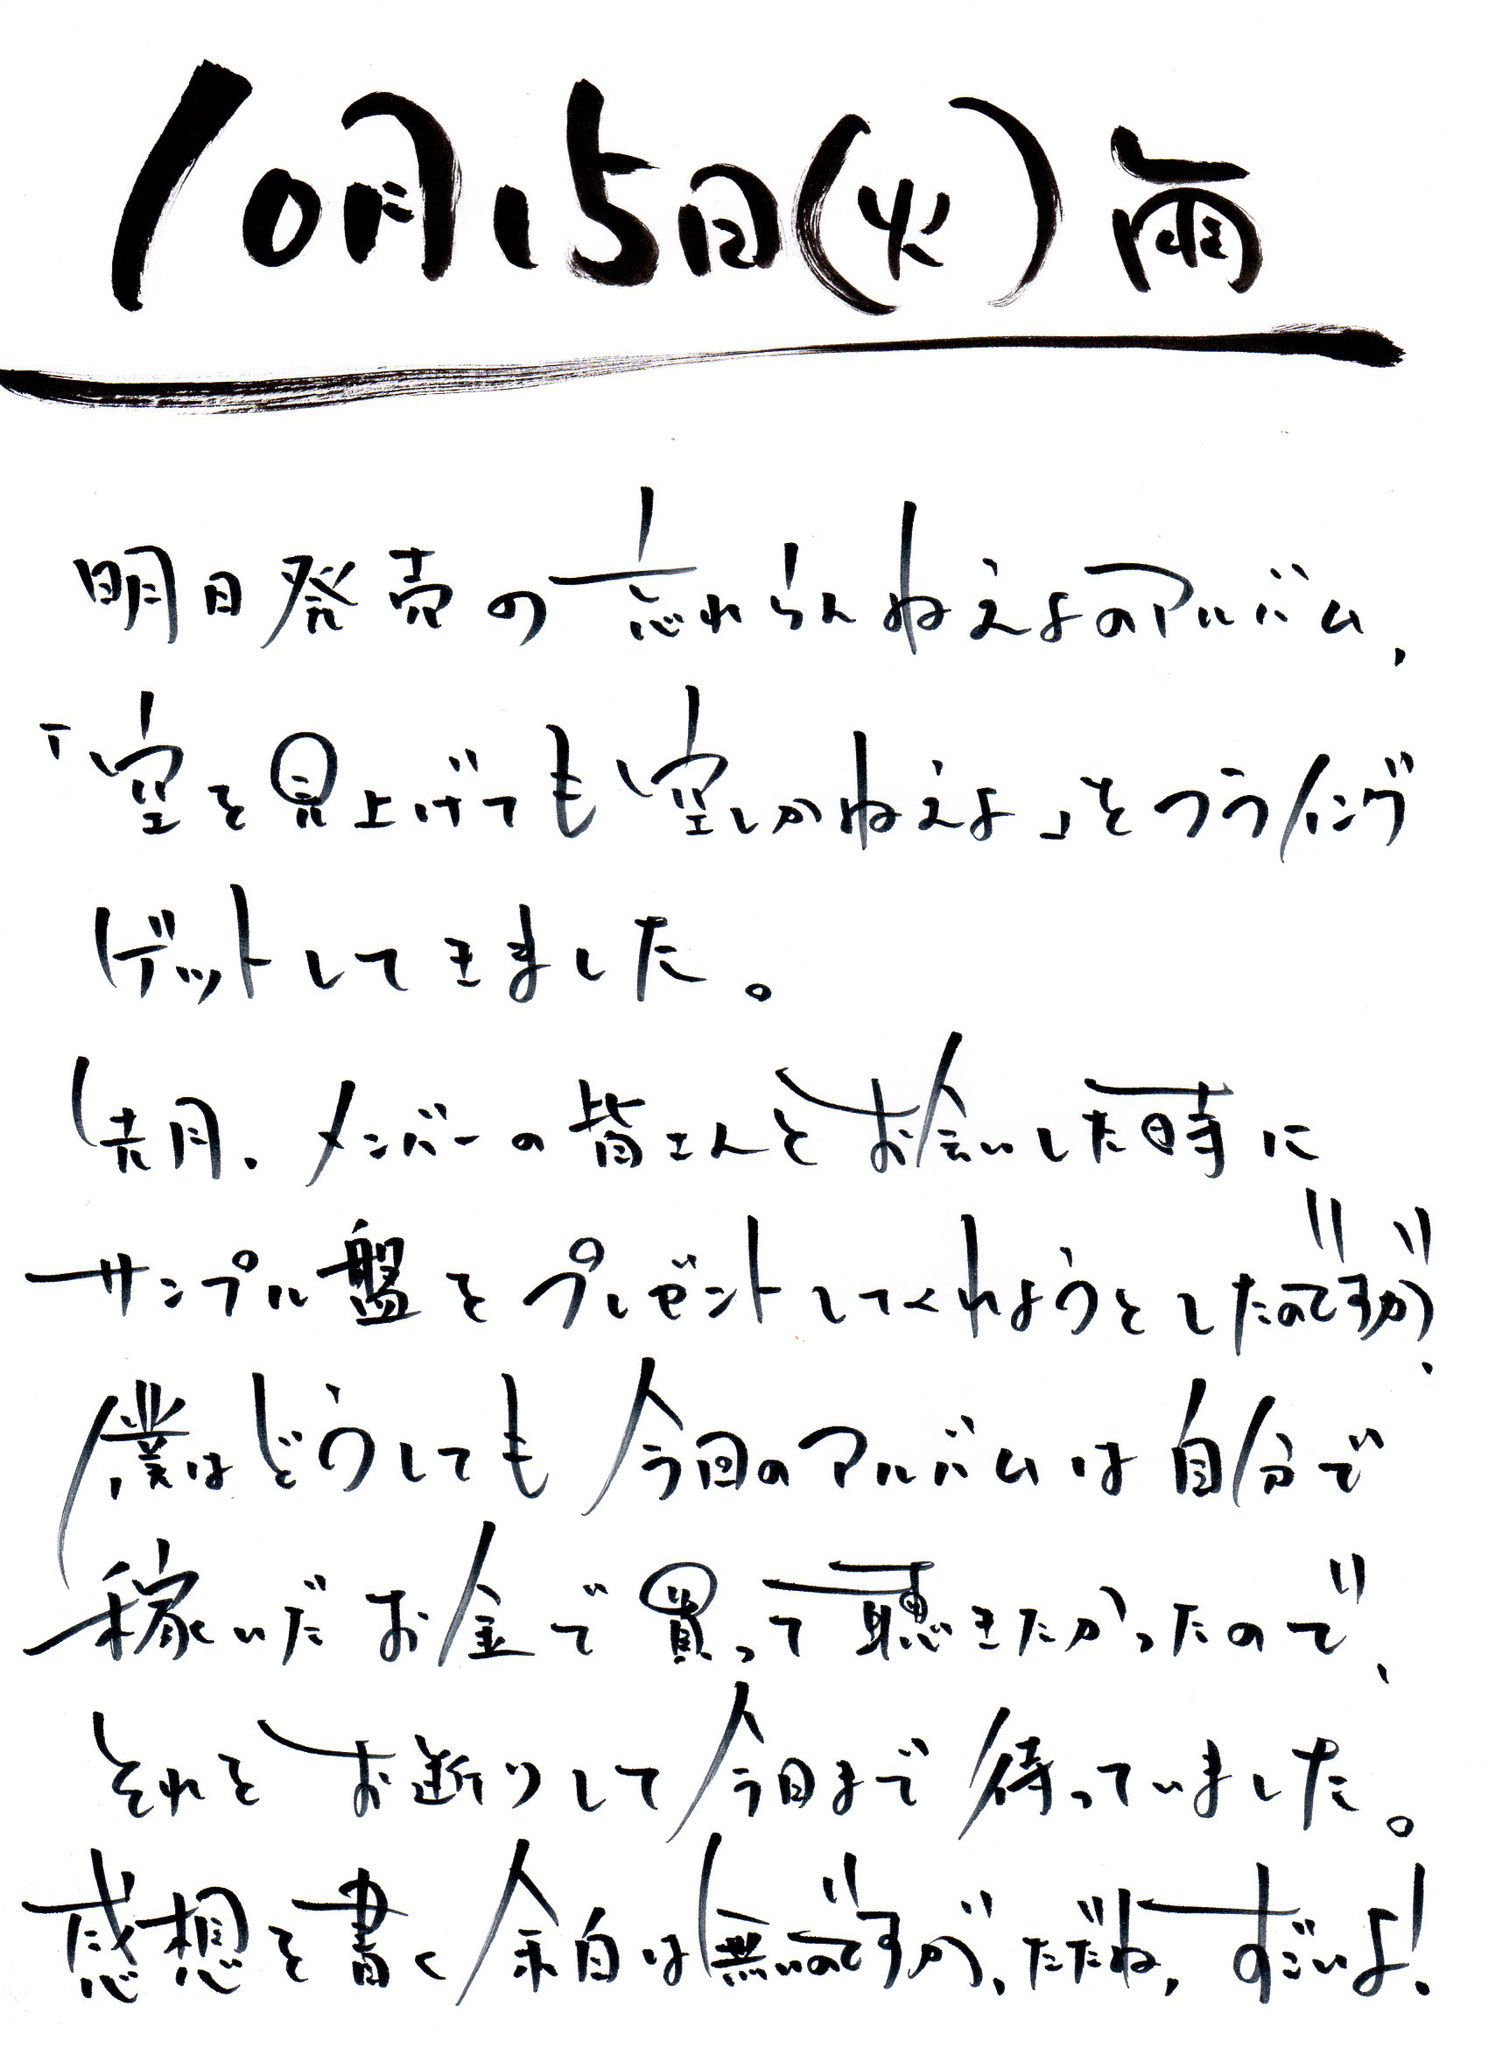 10月15日(火)雨
明日発売の忘れらんねえよのアルバム、
「空を見上げても空しかねえよ」をフライング
ゲットしてきました。
先月、メンバーの皆さんとお会いした時に
サンプル盤をプレゼントしてくれようとしたのですが、
僕はどうしても今回のアルバムは自分で
稼いだお金で買って聴きたかったので、
それをお断りして今日まで待っていました。
感想を書く余白は無いのですが、ただね、すごいよ!